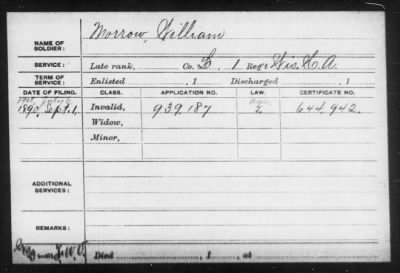 NAME OF SOLDIER: Morrow, William
SERVICE: Late rank, Co. L 1 Reg't Wis. H. A.
TERM OF SERVICE: Enlisted , 1 Discharged , 1
DATE OF FILING. CLASS. APPLICATION NO. LAW. CERTIFICATE NO.
1890, Sept. 1. Invalid, 939.187 2. 644.942.
Widow,
Minor,
ADDITIONAL SERVICES:
REMARKS:
Died , 1 , at